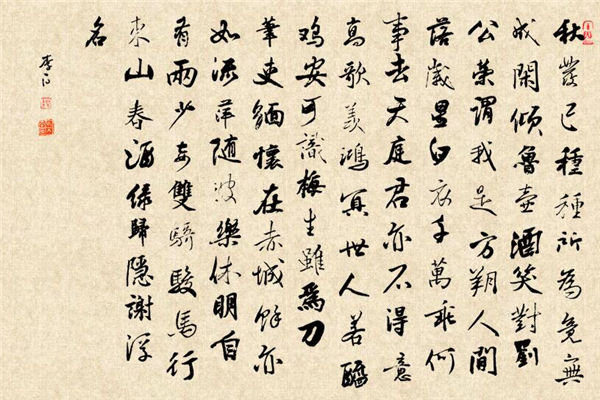 秋髮已種種所為竟無
成閑傾魯壺酒笑對劉
公榮謂我是方朔人間
落歲星白衣千萬乘何
事去天庭君亦不得意
高歌羨鴻冥世人若醯
鷄安可識梅生雖爲刀
筆吏緬懷在赤城餘亦
如流萍隨波樂休明自
有兩少妾雙騎駿馬行
東山春酒綠歸隱謝浮
名
李白